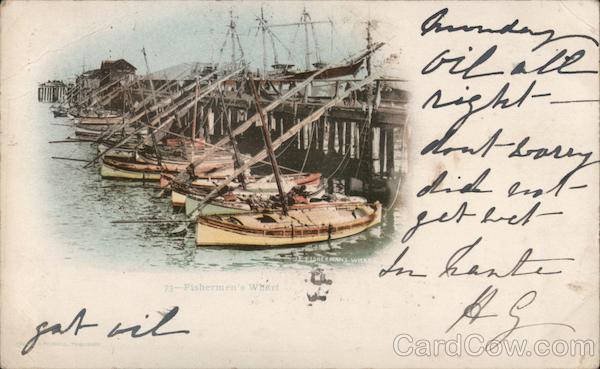 Monday
Oil all
right —
dont worry
did not
get wet
In haste
H G
73. FISHERMAN'S WHARF
73—Fishermen's Wharf
got oil
CardCow.com